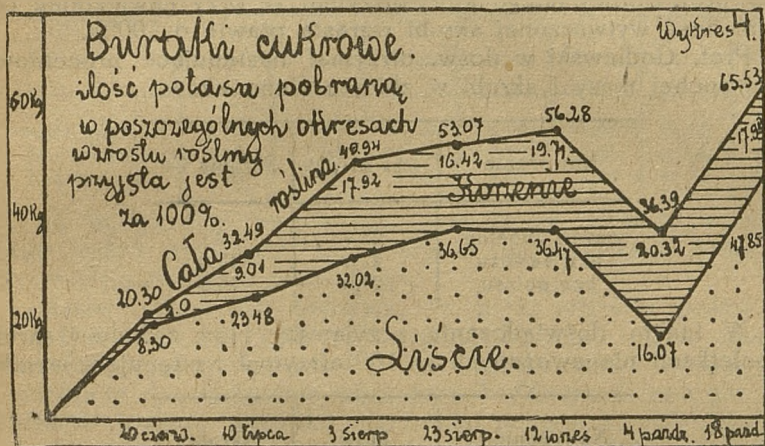 Wykres 4.
Buraki cukrowe.
ilość potasu pobraną
w poszczególnych okresach
wzrostu rośliny
przyjęta jest
za 100%.
60 Kg
40 Kg
20 Kg
Cała roślina
Korzenie
Liście.
20.30
32.49
49.94
53.07
56.28
36.39
65.53
2.0
9.01
17.92
16.42
19.71
20.32
17.98
8,30
23.48
32.02
36,65
36.47
16.07
47.85
20 czerw. 10 lipca 3 sierp 23 sierp. 12 wrześ 4 paźdz. 18 paźd